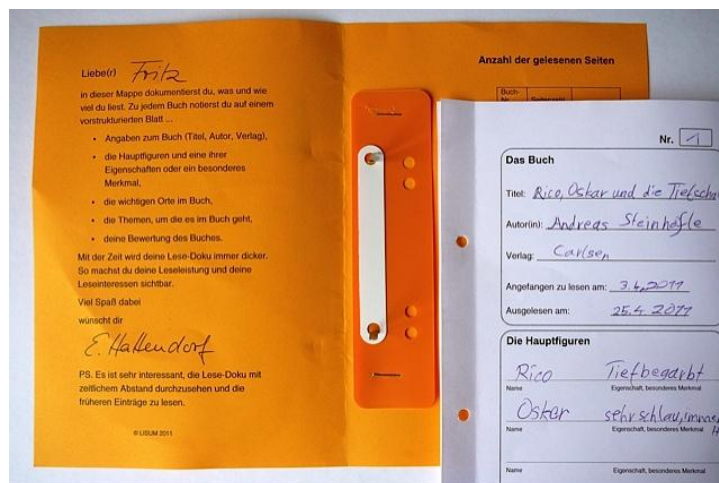 Liebe(r) Fritz
in dieser Mappe dokumentierst du, was und wie
viel du liest. Zu jedem Buch notierst du auf einem
vorstrukturierten Blatt ...
• Angaben zum Buch (Titel, Autor, Verlag),
• die Hauptfiguren und eine ihrer
Eigenschaften oder ein besonderes
Merkmal,
• die wichtigen Orte im Buch,
• die Themen, um die es im Buch geht,
• deine Bewertung des Buches.
Mit der Zeit wird deine Lese-Doku immer dicker.
So machst du deine Leseleistung und deine
Leseinteressen sichtbar.
Viel Spaß dabei
wünscht dir
E. Hattendorf
PS. Es ist sehr interessant, die Lese-Doku mit
zeitlichem Abstand durchzusehen und die
früheren Einträge zu lesen.
© LISUM 2011
Anzahl der gelesenen Seiten
Buch-
Nr. 1
Das Buch
Titel: Rico, Oskar und die Tiefscha
Autor(in): Andreas Steinhöfle
Verlag: Carlsen
Angefangen zu lesen am: 3.4.2011
Ausgelesen am: 25.4.2011
Die Hauptfiguren
Rico Tiefbegarbt
Name Eigenschaft, besonderes Merkmal
Oskar sehr schlau, immer
Name Eigenschaft, besonderes Merkmal
Name Eigenschaft, besonderes Merkmal